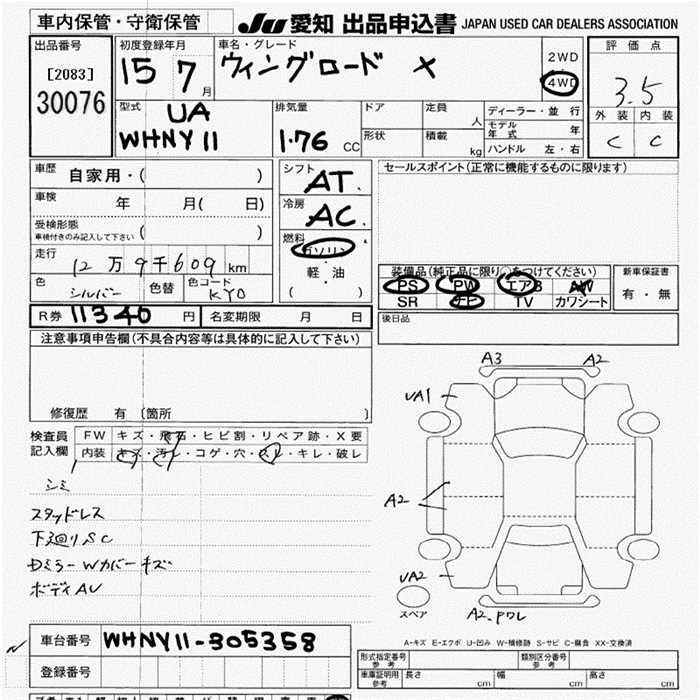 車内保管・守衛保管 JU 愛知 出品申込書 JAPAN USED CAR DEALERS ASSOCIATION
出品番号 初度登録年月 車名・グレード 2WD 評価点
[2083] 15 7月 ウィングロード X 4WD 3.5
30076 外装 内装
型式 UA 排気量 ドア 定員 人 ディーラー・並行 C C
WHNY11 1.76 CC 形状 積載 kg モデル年式 年
ハンドル 左・右
車歴 自家用・( ) シフト AT. セールスポイント(正常に機能するものに限ります)
車検 年 月( 日) 冷房 AC.
受検形態 ( )
車検付きのみ記入して下さい 燃料 ガソリン
走行 12万9千609km 軽・油 装備品(純正品に限り○をつけてください) 新車保証書
色 シルバー 色替 色コード KY0 ( ) PS PW エアB AW 有・無
SR ナビ TV カワシート
R券 11340円 名変期限 月 日 後日品
注意事項申告欄(不具合内容等は具体的に記入して下さい)
A3 A2
UA1
修復歴 有〔箇所 〕
検査員記入欄 FW キズ・飛石・ヒビ割・リペア跡・X要
内装 キズ・汚レ・コゲ・穴・スレ・キレ・破レ
シミ
A2
スタッドレス
下廻りSC
DミラーWカバーキズ
ボディAU
UA2
スペア A2.ワレ
A-キズ E-エクボ U-凹み W-補修跡 S-サビ C-腐食 XX-交換済
車台番号 WHNY11-305358
型式指定番号 参考 類別区分番号 参考
登録番号 車庫証明用 参考 長さ cm 幅 cm 高さ cm